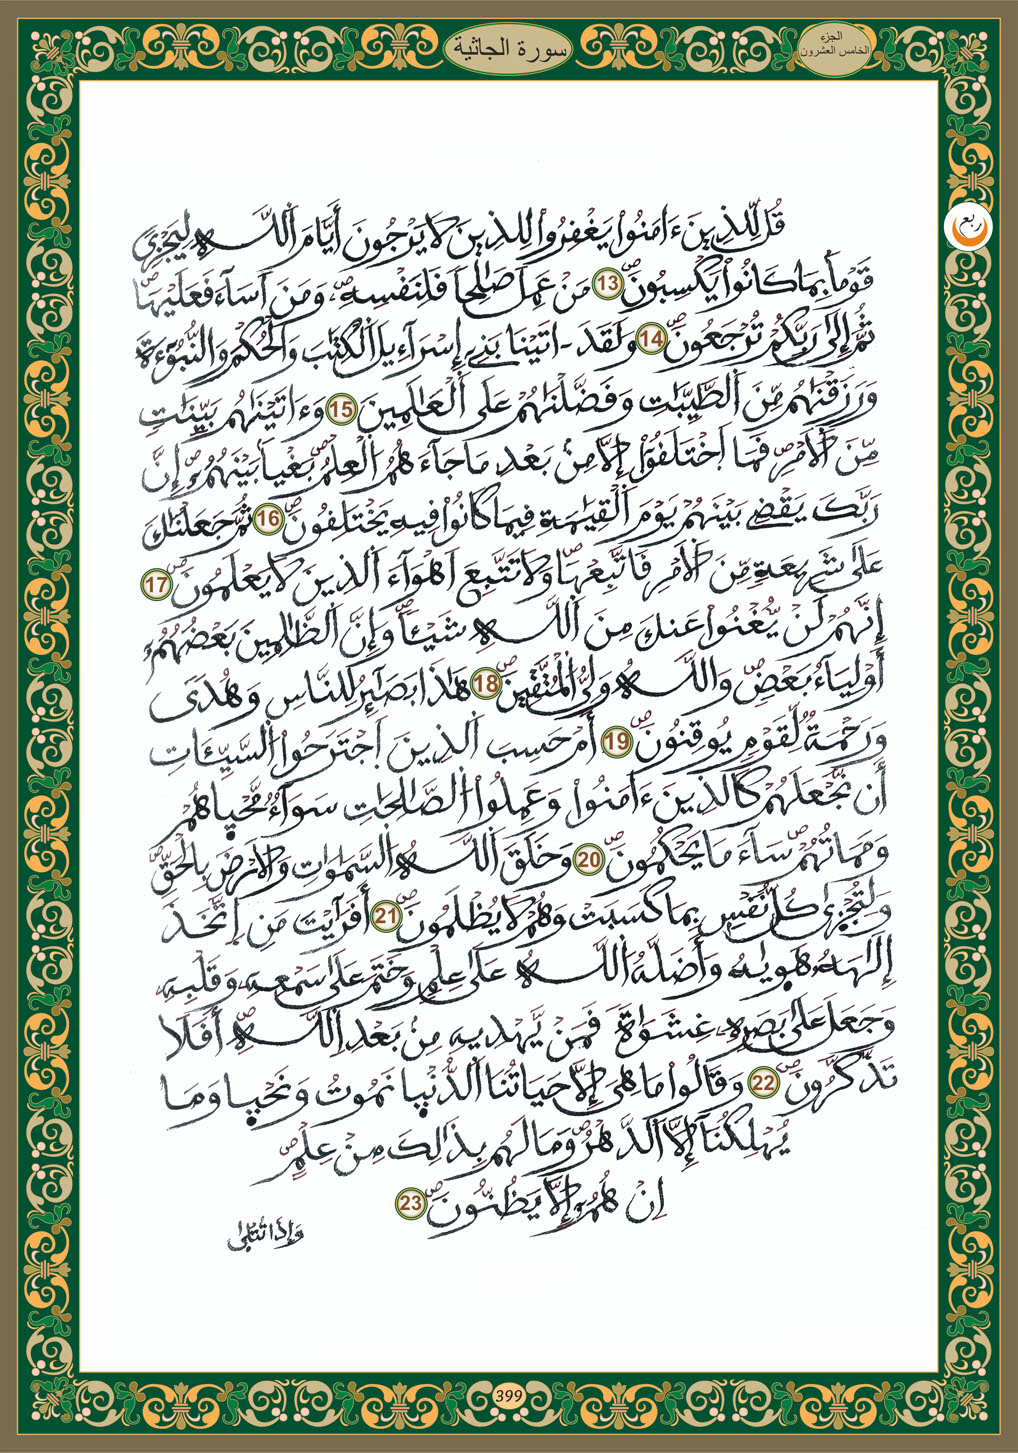 الجزء
الخامس العشرون
سورة الجاثية
ربع
قُل لِّلذِينَ ءَامَنُوا يَغْفِرُوا لِلذِينَ لَا يَرْجُونَ أَيَّامَ اَللَّهِ لِيَجْزِيَ
قَوْماً بِمَا كَانُوا يَكْسِبُونَ 13 مَنْ عَمِلَ صَالِحاً فَلِنَفْسِهِ وَمَنَ اَسَآءَ فَعَلَيْهَا
ثُمَّ إِلَىٰ رَبِّكُمْ تُرْجَعُونَ 14 وَلَقَدَ اتَيْنَا بَنِے إِسْرَآءِيلَ اَلْكِتَٰبَ وَالْحُكْمَ وَالنُّبُوٓءَةَ
وَرَزَقْنَٰهُم مِّنَ اَلطَّيِّبَٰتِ وَفَضَّلْنَٰهُمْ عَلَى اَلْعَٰلَمِينَ 15 وَءَاتَيْنَٰهُم بَيِّنَٰتٍ
مِّنَ اَلَامْرِ فَمَا اَخْتَلَفُوٓا إِلَّا مِنۢ بَعْدِ مَا جَآءَهُمُ اُلْعِلْمُ بَغْياً بَيْنَهُمُۥٓ إِنَّ
رَبَّكَ يَقْضِے بَيْنَهُمْ يَوْمَ اَلْقِيَٰمَةِ فِيمَا كَانُوا فِيهِ يَخْتَلِفُونَ 16 ثُمَّ جَعَلْنَٰكَ
عَلَىٰ شَرِيعَةٍ مِّنَ اَلَامْرِ فَاتَّبِعْهَا وَلَا تَتَّبِعَ اَهْوَآءَ اَلذِينَ لَا يَعْلَمُونَ 17
إِنَّهُمْ لَنْ يُّغْنُوا عَنكَ مِنَ اَللَّهِ شَيْـٔاً وَإِنَّ اَلظَّٰلِمِينَ بَعْضُهُمُۥٓ
أَوْلِيَآءُ بَعْضٍ وَاللَّهُ وَلِيُّ اُلْمُتَّقِينَ 18 هَٰذَا بَصَٰٓئِرُ لِلنَّاسِ وَهُدىً
وَرَحْمَةٌ لِّقَوْمٍ يُوقِنُونَ 19 أَمْ حَسِبَ اَلذِينَ اَجْتَرَحُوا اُلسَّيِّـَٔاتِ
أَن نَّجْعَلَهُمْ كَالذِينَ ءَامَنُوا وَعَمِلُوا اُلصَّٰلِحَٰتِ سَوَآءٌ مَّحْيٜاهُمْ
وَمَمَاتُهُمْ سَآءَ مَا يَحْكُمُونَ 20 وَخَلَقَ اَللَّهُ اُلسَّمَٰوَٰتِ وَالَارْضَ بِالْحَقِّ
وَلِتُجْزَىٰ كُلُّ نَفْسٍ بِمَا كَسَبَتْ وَهُمْ لَا يُظْلَمُونَ 21 أَفَرَٰٓيْتَ مَنِ اِتَّخَذَ
إِلَٰهَهُ هَوٜيٰهُ وَأَضَلَّهُ اُللَّهُ عَلَىٰ عِلْمٍ وَخَتَمَ عَلَىٰ سَمْعِهِ وَقَلْبِهِ
وَجَعَلَ عَلَىٰ بَصَرِهِ غِشَٰوَةً فَمَنْ يَّهْدِيهِ مِنۢ بَعْدِ اِللَّهِ أَفَلَا
تَذَّكَّرُونَ 22 وَقَالُوا مَا هِيَ إِلَّا حَيَاتُنَا اَلدُّنْيٜا نَمُوتُ وَنَحْيٜا وَمَا
يُهْلِكُنَآ إِلَّا اَلدَّهْرُ وَمَا لَهُم بِذَٰلِكَ مِنْ عِلْمٍ
اِنْ هُمُۥٓ إِلَّا يَظُنُّونَ 23
وَإِذَا تُتْلَىٰ
399